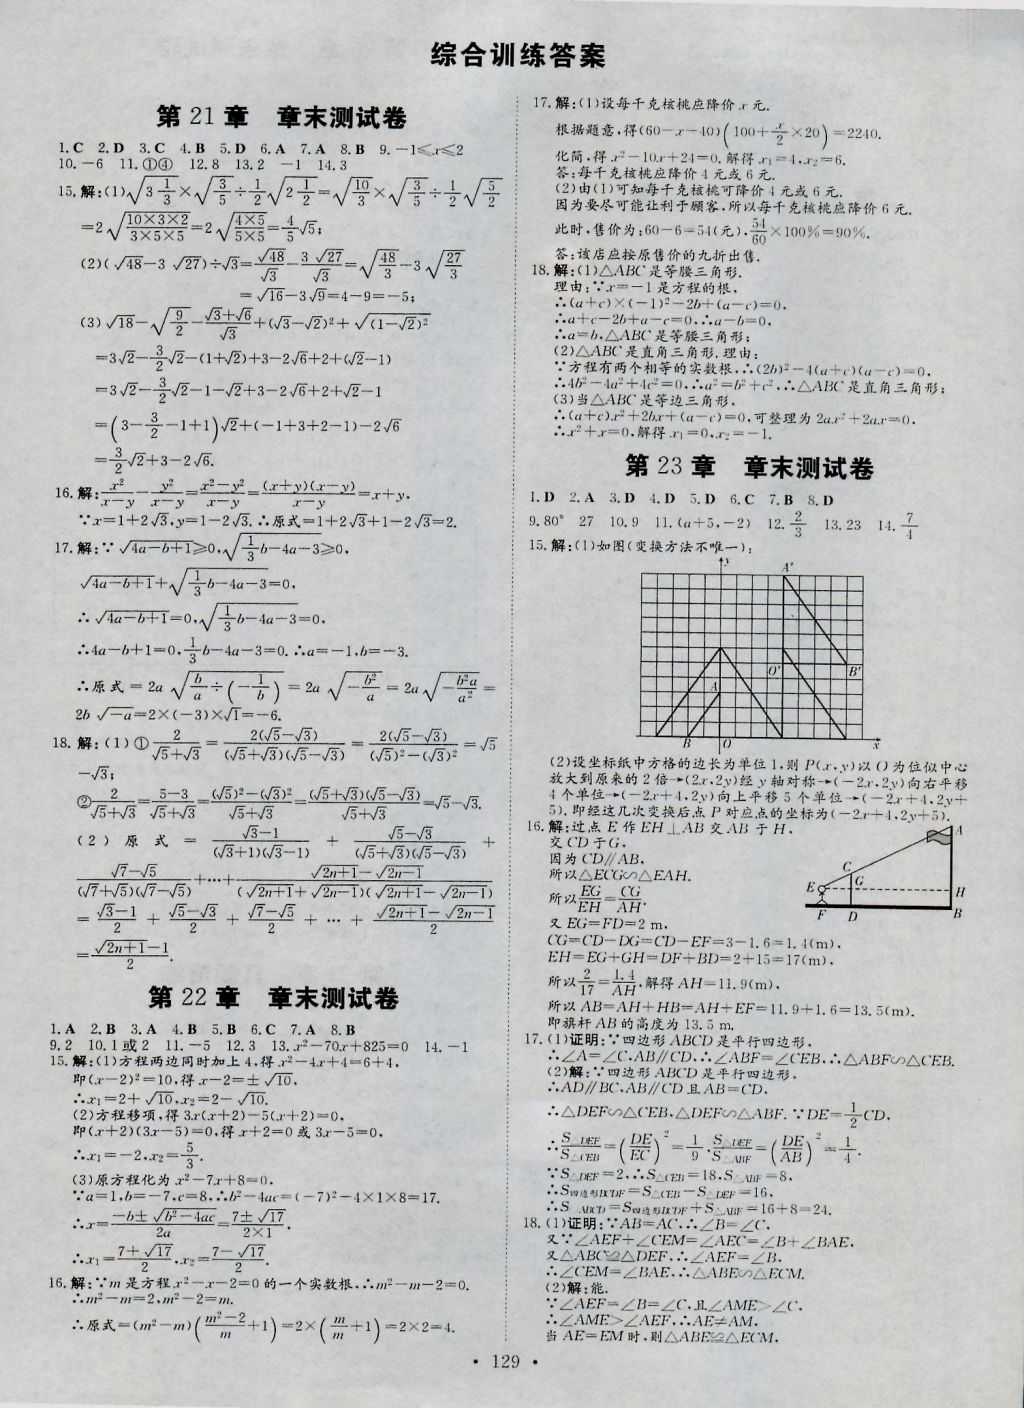 综合训练答案
第21章 章末测试卷
1.C 2.D 3.C 4.B 5.D 6.A 7.A 8.B 9.-1≤x≤2
10.-6 11.①④ 12.8 13.2 -1 14.3
15.解:(1)√(3 1/3)×√(3/5)÷1/2√(2 1/2)=√(10/3)×√(3/5)÷1/2√(5/2)
=2√((10×3×2)/(3×5×5))=2√((4×5)/(5×5))=4/5√5;
(2)(√48-3√27)÷√3=√48/√3-3√27/√3=√(48/3)-3√(27/3)
=√16-3√9=4-9=-5;
(3)√18-√(9/2)-(√3+√6)/√3+(√3-√2)²+√((1-√2)²)
=3√2-3/2√2-(1+√2)+3-2√6+2+(√2-1)
=3√2-3/2√2-1-√2+3-2√6+2+√2-1
=(3-3/2-1+1)√2+(-1+3+2-1)-2√6
=3/2√2+3-2√6.
16.解:x²/(x-y)-y²/(x-y)=(x²-y²)/(x-y)=(x+y)(x-y)/(x-y)=x+y,
∵x=1+2√3,y=1-2√3.∴原式=1+2√3+1-2√3=2.
17.解:∵√(4a-b+1)≥0,√(1/3b-4a-3)≥0,
√(4a-b+1)+√(1/3b-4a-3)=0,
∴√(4a-b+1)=0,√(1/3b-4a-3)=0.
∴4a-b+1=0,1/3b-4a-3=0.∴a=-1,b=-3.
∴原式=2a√(b/a÷(-1/b))=2a√(-b²/a)=2a√(-b²a/a²)=
2b√(-a)=2×(-3)×√1=-6.
18.解:(1)①2/(√5+√3)=2(√5-√3)/((√5+√3)(√5-√3))=2(√5-√3)/((√5)²-(√3)²)=√5
-√3;
②2/(√5+√3)=(5-3)/(√5+√3)=((√5)²-(√3)²)/(√5+√3)=(√5+√3)(√5-√3)/(√5+√3)=√5-√3.
(2)原式=(√3-1)/((√3+1)(√3-1))+(√5-√3)/((√5+√3)(√5-√3))+
(√7-√5)/((√7+√5)(√7-√5))+…+(√(2n+1)-√(2n-1))/((√(2n+1)+√(2n-1))(√(2n+1)-√(2n-1)))
=(√3-1)/2+(√5-√3)/2+(√7-√5)/2+…+(√(2n+1)-√(2n-1))/2
=(√(2n+1)-1)/2.
第22章 章末测试卷
1.A 2.B 3.A 4.B 5.B 6.C 7.A 8.B
9.2 10.1或2 11.-5 12.3 13.x²-70x+825=0 14.-1
15.解:(1)方程两边同时加上4,得x²-4x+4=6+4,
即(x-2)²=10,得x-2=±√10,
∴x₁=2+√10,x₂=2-√10.
(2)方程移项,得3x(x+2)-5(x+2)=0,
即(x+2)(3x-5)=0,得x+2=0或3x-5=0,
∴x₁=-2,x₂=5/3.
(3)原方程化为x²-7x+8=0,
∵a=1,b=-7,c=8,∴b²-4ac=(-7)²-4×1×8=17.
∴x=(-b±√(b²-4ac))/2a=(7±√17)/(2×1).
∴x₁=(7+√17)/2,x₂=(7-√17)/2.
16.解:∵m是方程x²-x-2=0的一个实数根,∴m²-m-2=0.
∴m²-m=2,m²-2=m.
∴原式=(m²-m)((m²-2)/m+1)=2×(m/m+1)=2×2=4.
17.解:(1)设每千克核桃应降价x元.
根据题意,得(60-x-40)(100+x/2×20)=2240.
化简,得x²-10x+24=0.解得x₁=4,x₂=6.
答:每千克核桃应降价4元或6元.
(2)由(1)可知每千克核桃可降价4元或6元.
因为要尽可能让利于顾客,所以每千克核桃应降价6元.
此时,售价为:60-6=54(元),54/60×100%=90%.
答:该店应按原售价的九折出售.
18.解:(1)△ABC是等腰三角形.
理由:∵x=-1是方程的根,
∴(a+c)×(-1)²-2b+(a-c)=0,
∴a+c-2b+a-c=0,∴a-b=0,
∴a=b,△ABC是等腰三角形;
(2)△ABC是直角三角形.理由:
∵方程有两个相等的实数根,∴(2b)²-4(a+c)(a-c)=0,
∴4b²-4a²+4c²=0,∴a²=b²+c²,∴△ABC是直角三角形;
(3)当△ABC是等边三角形,
∴(a+c)x²+2bx+(a-c)=0,可整理为2ax²+2ax=0,
∴x²+x=0,解得x₁=0,x₂=-1.
第23章 章末测试卷
1.D 2.A 3.D 4.D 5.D 6.C 7.B 8.D
9.80° 27 10.9 11.(a+5,-2) 12.2/3 13.23 14.7/4
15.解:(1)如图(变换方法不唯一);
y A′
O′ B′
A
B O x
(2)设坐标纸中方格的边长为单位1,则P(x,y)以O为位似中心
放大到原来的2倍→(2x,2y)经y轴对称→(-2x,2y)向右平移
4个单位→(-2x+4,2y)向上平移5个单位→(-2x+4,2y+
5).即经这几次变换后点P对应点的坐标为(-2x+4,2y+5).
16.解:过点E作EH⊥AB交AB于H,
交CD于G,
因为CD∥AB,
所以△ECG∽△EAH.
所以EG/EH=CG/AH.
又EG=FD=2 m,
A
C
E G H
F D B
CG=CD-DG=CD-EF=3-1.6=1.4(m),
EH=EG+GH=DF+BD=2+15=17(m),
所以2/17=1.4/AH,解得AH=11.9(m),
所以AB=AH+HB=AH+EF=11.9+1.6=13.5(m).
即旗杆AB的高度为13.5 m.
17.(1)证明:∵四边形ABCD是平行四边形,
∴∠A=∠C,AB∥CD,∴∠ABF=∠CEB,∴△ABF∽△CEB.
(2)解:∵四边形ABCD是平行四边形,
∴AD∥BC,AB∥CD且AB=CD,
∴△DEF∽△CEB,△DEF∽△ABF.∵DE=1/2CD,
∴S△DEF/S△CEB=(DE/EC)²=1/9,S△DEF/S△ABF=(DE/AB)²=1/4.
∵S△DEF=2,∴S△CEB=18,S△ABF=8,
∴S四边形BCDF=S△CEB-S△DEF=16,
∴S▱ABCD=S四边形BCDF+S△ABF=16+8=24.
18.(1)证明:∵AB=AC,∴∠B=∠C,
又∵∠AEF+∠CEM=∠AEC=∠B+∠BAE,
又△ABC≌△DEF,∴∠AEF=∠B,
∴∠CEM=∠BAE,∴△ABE∽△ECM.
(2)解:能.
∵∠AEF=∠B=∠C,且∠AME>∠C,
∴∠AME>∠AEF,∴AE≠AM,
当AE=EM时,则△ABE≌△ECM,
• 129 •